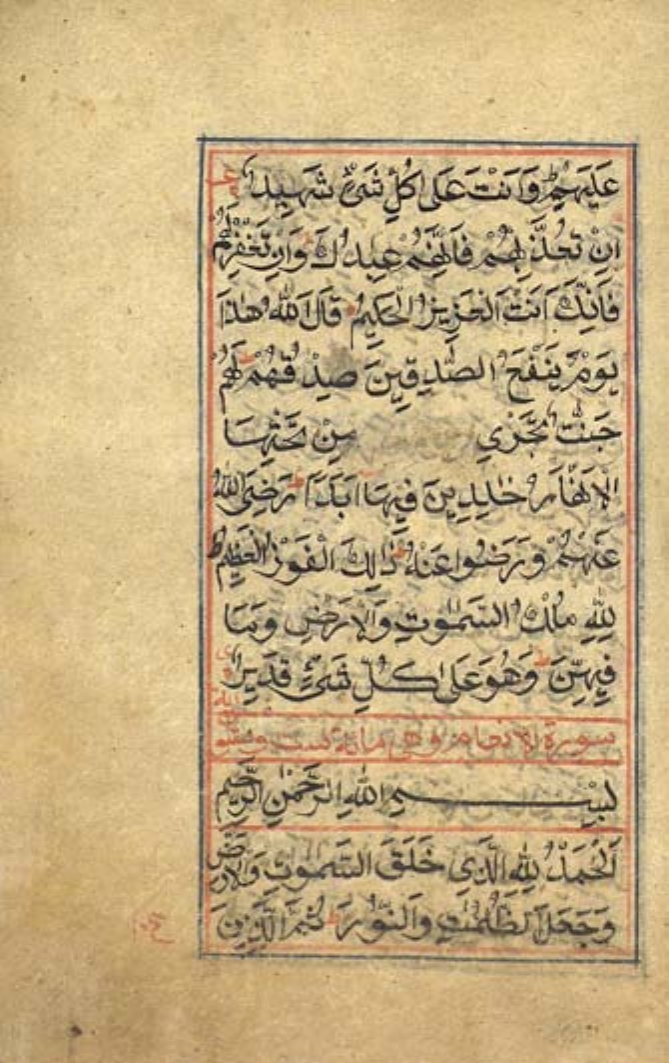 عَلَيْهِمْ وَاَنْتَ عَلٰى كُلِّ شَىْءٍ شَهِيدٌ
اِنْ تُعَذِّبْهُمْ فَاِنَّهُمْ عِبَادُكَ وَاِنْ تَغْفِرْ لَهُمْ
فَاِنَّكَ اَنْتَ الْعَزِيزُ الْحَكِيمُ قَالَ اللّٰهُ هٰذَا
يَوْمُ يَنْفَعُ الصّٰدِقِينَ صِدْقُهُمْ لَهُمْ
جَنّٰتٌ تَجْرِى مِنْ تَحْتِهَا
الْاَنْهَارُ خٰلِدِينَ فِيهَا اَبَدًا رَضِىَ اللّٰهُ
عَنْهُمْ وَرَضُوا عَنْهُ ذٰلِكَ الْفَوْزُ الْعَظِيمُ
لِلّٰهِ مُلْكُ السَّمٰوٰتِ وَالْاَرْضِ وَمَا
فِيهِنَّ وَهُوَ عَلٰى كُلِّ شَىْءٍ قَدِيرٌ
سورة الانعام وهى مائة ست وستو
بِسْمِ اللّٰهِ الرَّحْمٰنِ الرَّحِيمِ
اَلْحَمْدُ لِلّٰهِ الَّذِى خَلَقَ السَّمٰوٰتِ وَالْاَرْضَ
وَجَعَلَ الظُّلُمٰتِ وَالنُّورَ ثُمَّ الَّذِينَ